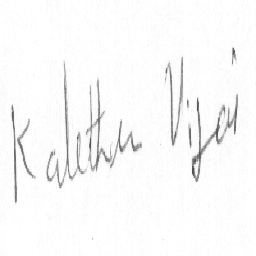 Kalethar Vijai